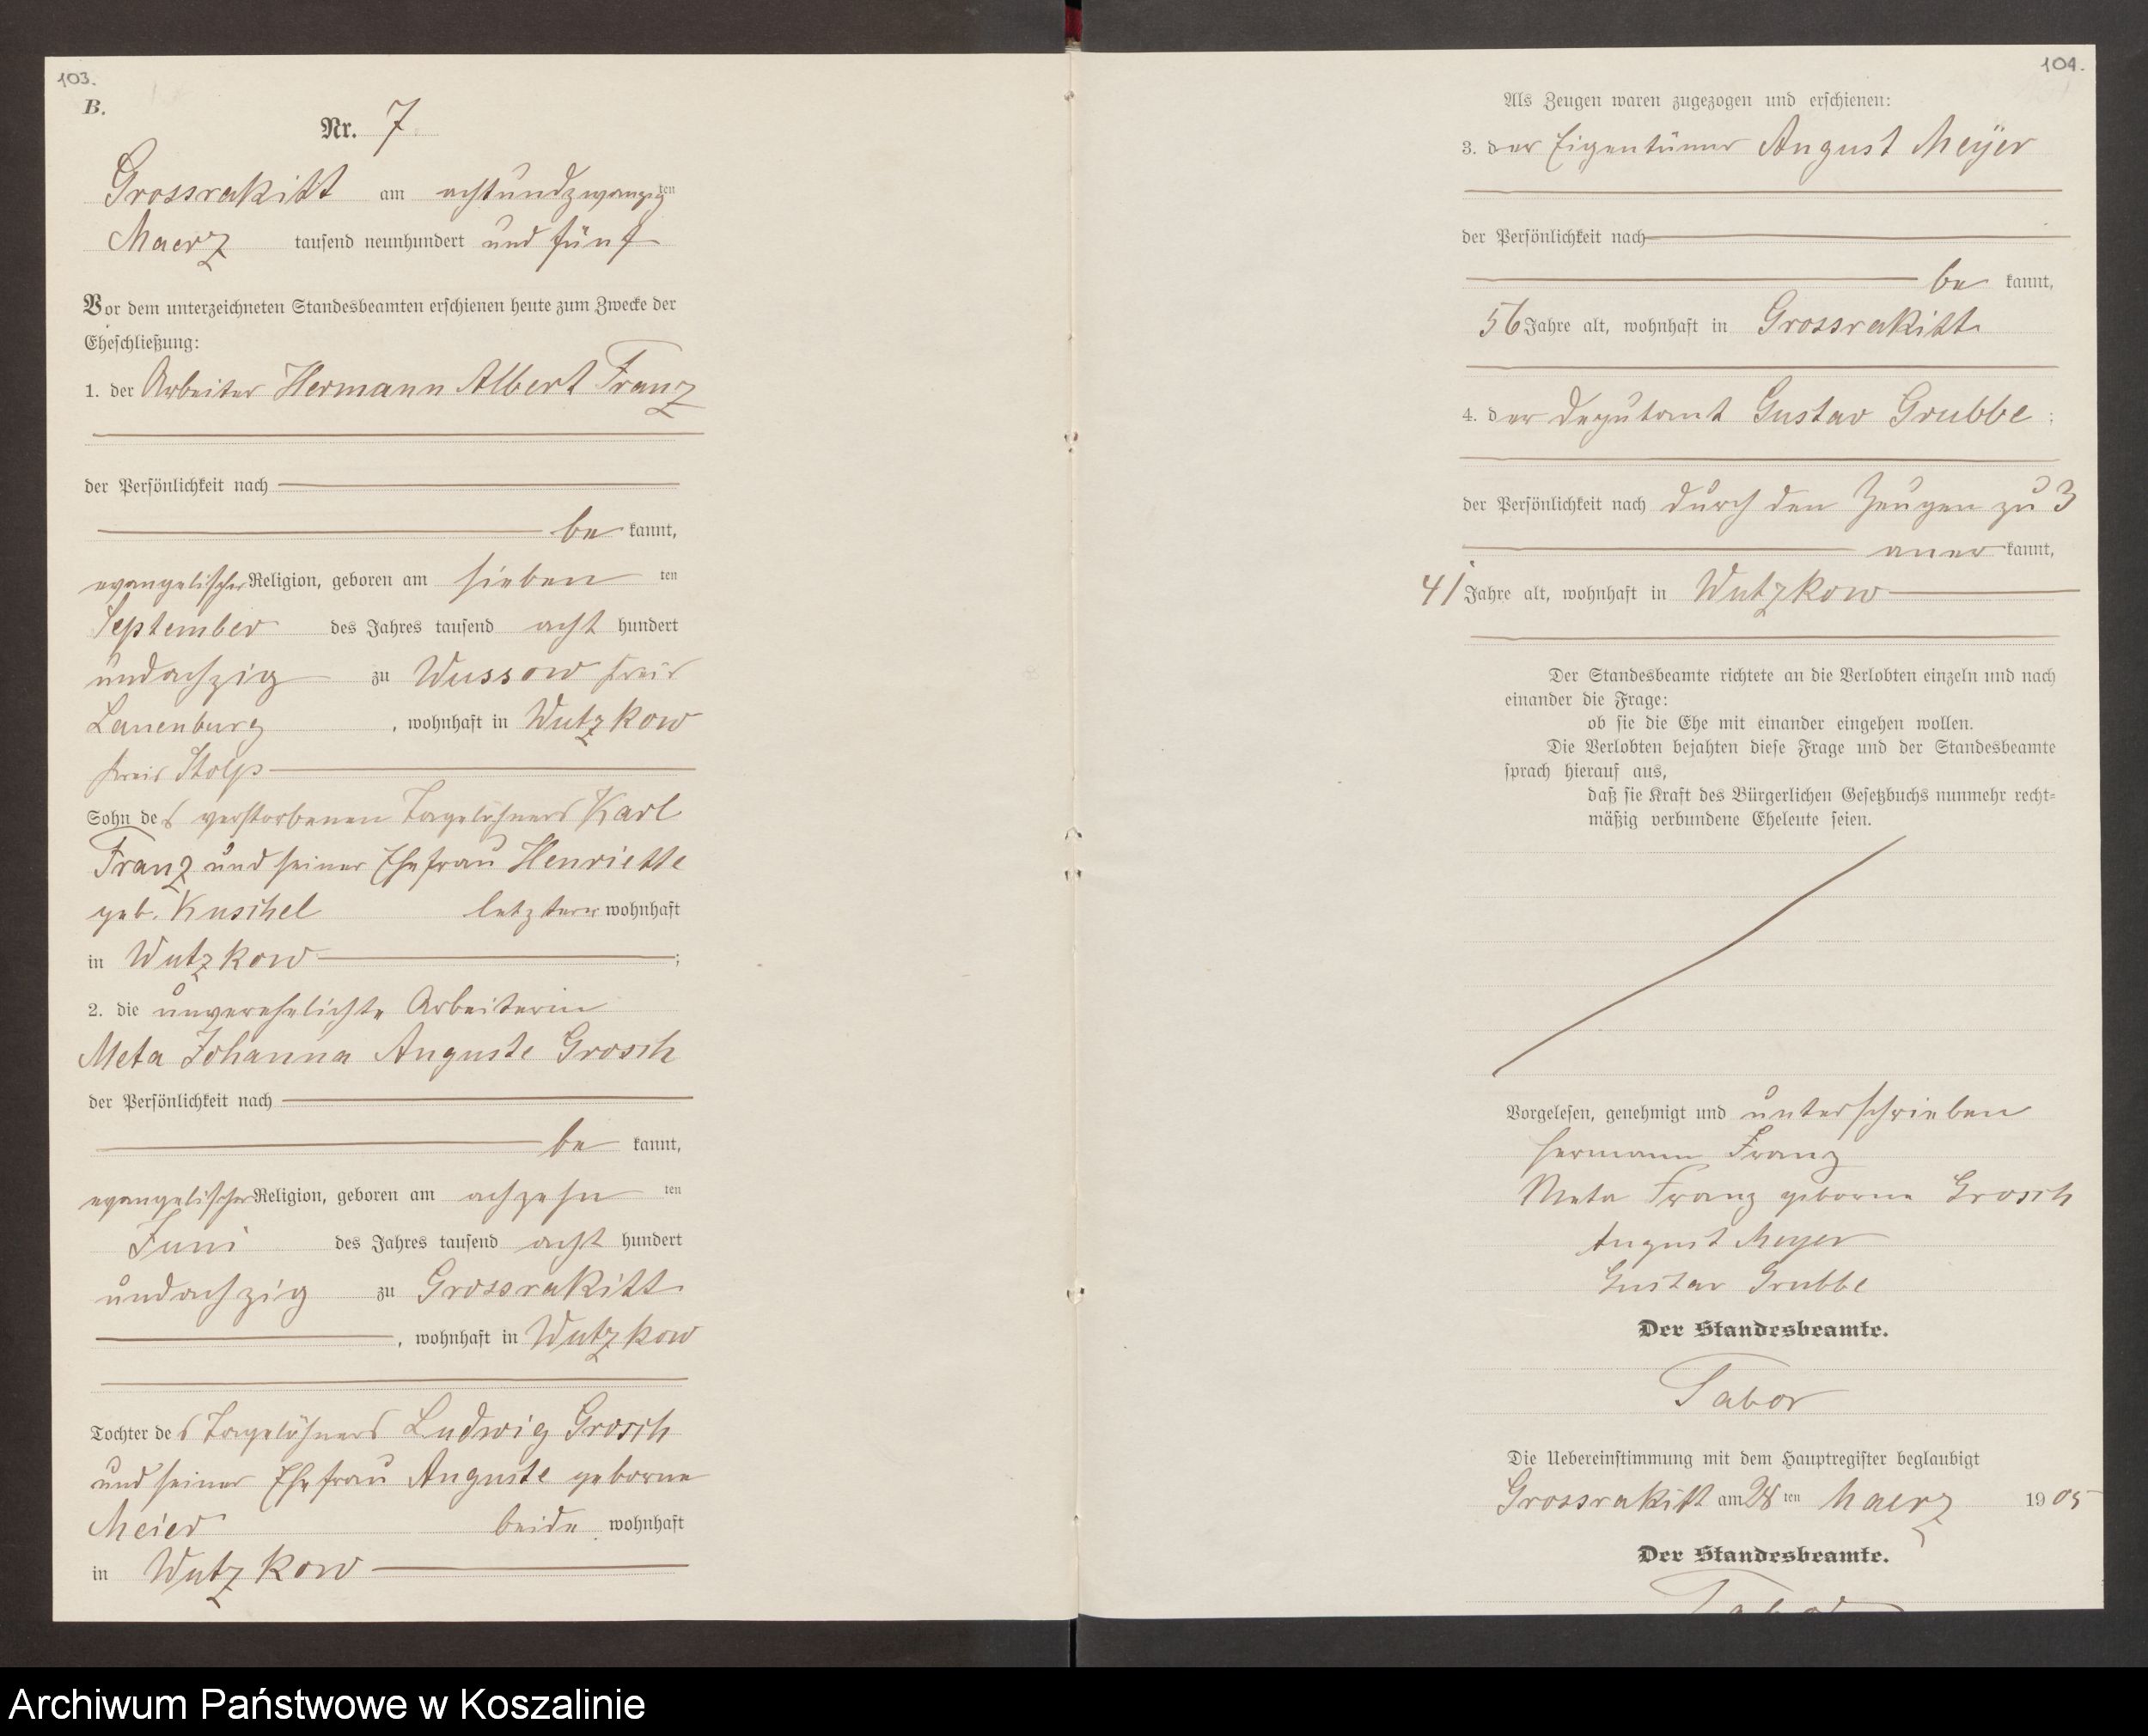 103.
B.
Nr. 7
Grossrakitt am achtundzwanzigten
Maerz tausend neunhundert und fünf
Vor dem unterzeichneten Standesbeamten erschienen heute zum Zwecke der
Eheschließung:
1. der Arbeiter Hermann Albert Franz
der Persönlichkeit nach
be kannt,
evangelischer Religion, geboren am sieben ten
September des Jahres tausend acht hundert
undachzig zu Wussow Kreis
Lauenburg , wohnhaft in Wutzkow
Kreis Stolp
Sohn des verstorbenen Tagelöhners Karl
Franz und seiner Ehefrau Henriette
geb. Kuschel letztere wohnhaft
in Wutzkow ;
2. die unverehelichte Arbeiterin
Meta Johanna Auguste Grosch
der Persönlichkeit nach
be kannt,
evangelischer Religion, geboren am achzehn ten
Juni des Jahres tausend acht hundert
undachzig zu Grossrakitt
, wohnhaft in Wutzkow
Tochter des Tagelöhners Ludwig Grosch
und seiner Ehefrau Auguste geborne
Meier beide wohnhaft
in Wutzkow
104.
Als Zeugen waren zugezogen und erschienen:
3. der Eigentümer August Meyer
der Persönlichkeit nach
be kannt,
56 Jahre alt, wohnhaft in Grossrakitt
4. der Deputant Gustav Grubbe ;
der Persönlichkeit nach durch den Zeugen zu 3
aner kannt,
41 Jahre alt, wohnhaft in Wutzkow
Der Standesbeamte richtete an die Verlobten einzeln und nach
einander die Frage:
ob sie die Ehe mit einander eingehen wollen.
Die Verlobten bejahten diese Frage und der Standesbeamte
sprach hierauf aus,
daß sie Kraft des Bürgerlichen Gesetzbuchs nunmehr recht=
mäßig verbundene Eheleute seien.
Vorgelesen, genehmigt und unterschrieben
Hermann Franz
Meta Franz geborne Grosch
August Meyer
Gustav Grubbe
Der Standesbeamte.
Tabor
Die Uebereinstimmung mit dem Hauptregister beglaubigt
Grossrakitt am 28 ten Maerz 1905
Der Standesbeamte.
Tabor
Archiwum Państwowe w Koszalinie